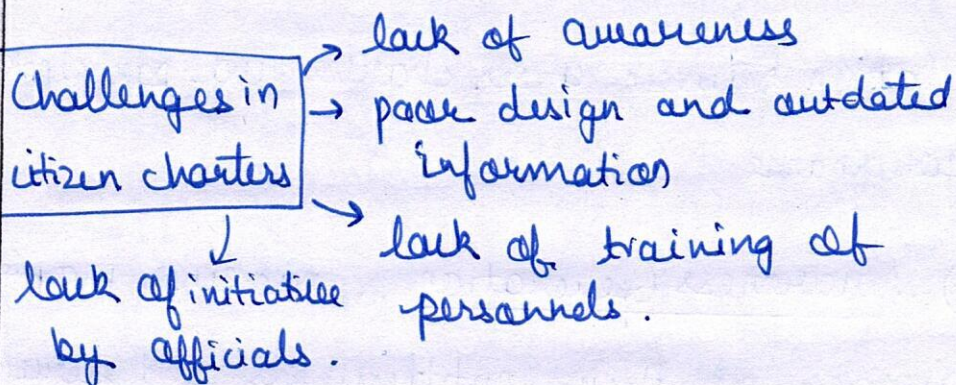 Challenges in
citizen charters
→ lack of awareness
→ poor design and outdated
information
→ lack of training of
personnels.
↓
lack of initiative
by officials.